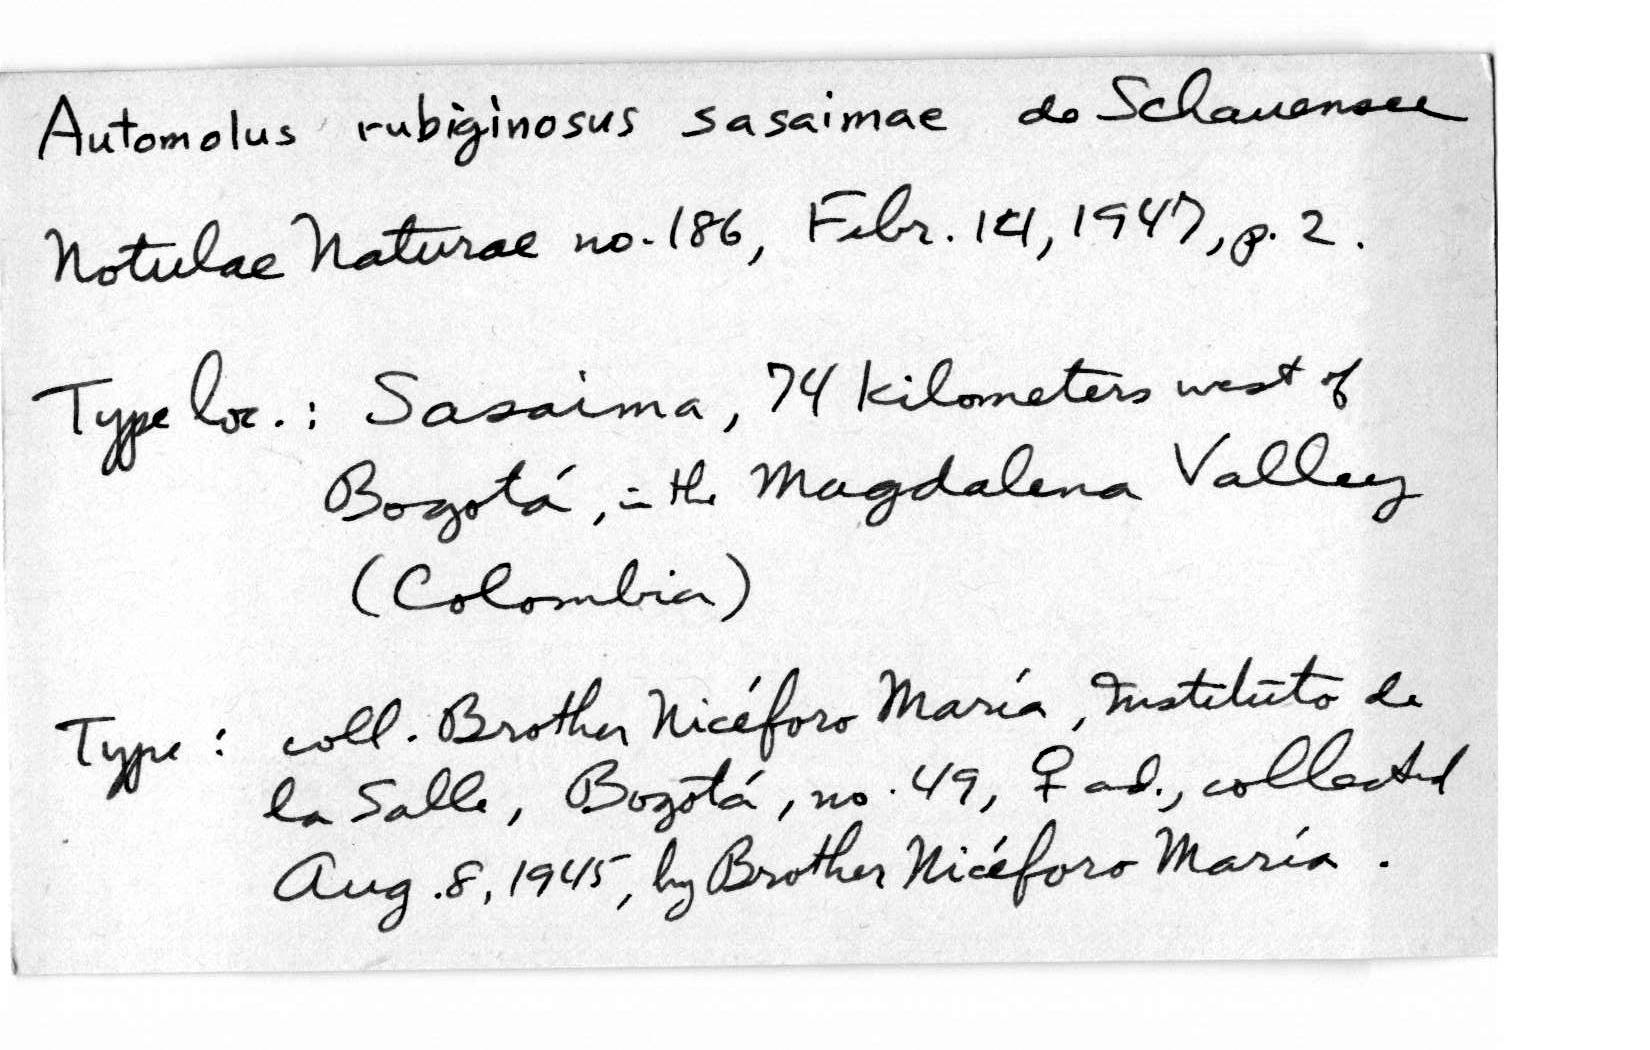 Automolus rubiginosus sasaimae de Schauensee
Notulae Naturae no. 186, Febr. 14, 1947, p. 2.
Type loc.: Sasaima, 74 kilometers west of
Bogotá, in the Magdalena Valley
(Colombia)
Type: coll. Brother Nicéforo María, Instituto de
la Salle, Bogotá, no. 49, ♀ ad., collected
Aug. 8, 1945, by Brother Nicéforo María.